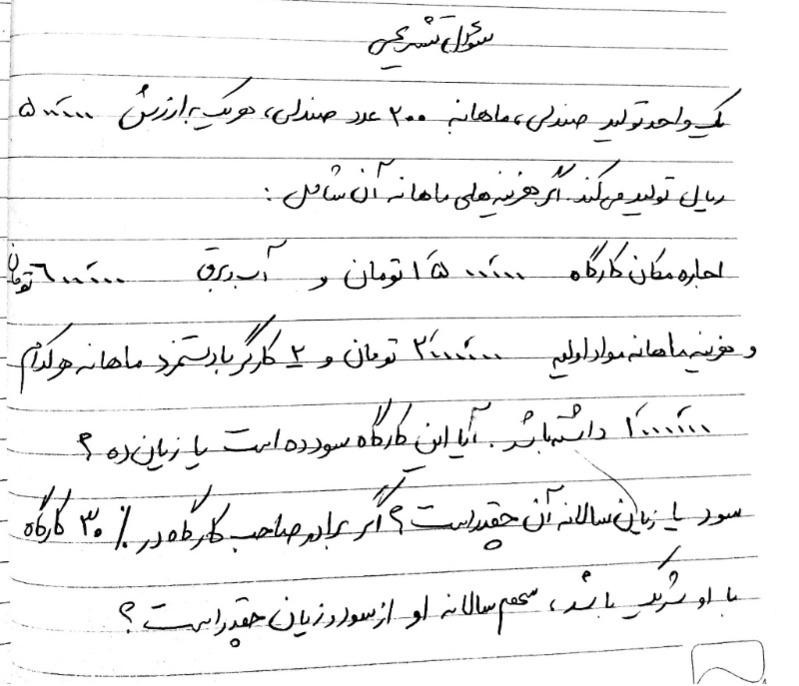 سوال تشریحی
یک واحد تولید صندلی، ماهانه ۲۰۰ عدد صندلی، هر یک به ارزش ۵۰۰۰۰۰۰
ریال تولید می‌کند. اگر هزینه‌های ماهانه آن شامل :
اجاره مکان کارگاه ۱۵۰۰۰۰۰۰ تومان و آب و برق ۶۰۰۰۰۰۰ تومان
و هزینه ماهانه مواد اولیه ۲۰۰۰۰۰۰۰ تومان و ۲ کارگر با دستمزد ماهانه هر کدام
۱۰۰۰۰۰۰۰ داشته باشد. آیا این کارگاه سودده است یا زیان‌ده ؟
سود یا زیان سالانه آن چقدر است؟ اگر برادر صاحب کارگاه در ٪۳۰ کارگاه
با او شریک باشد، سهم سالانه او از سود و زیان چقدر است؟